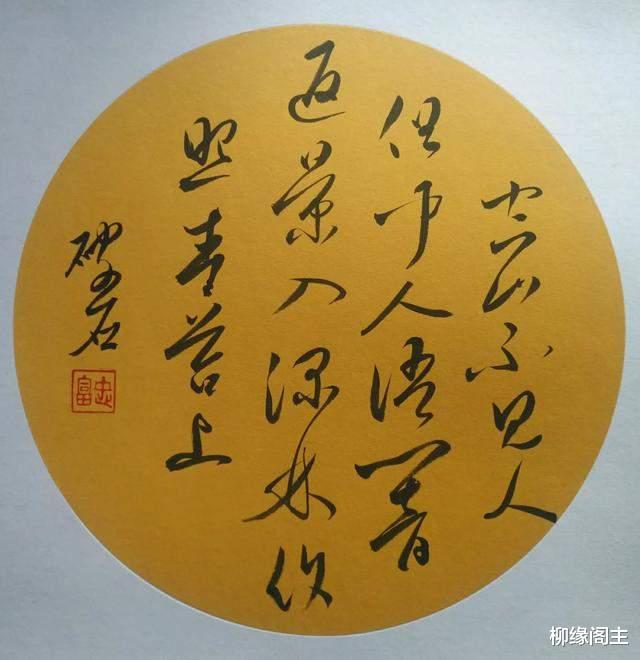 空山不见人
但闻人语響
返景入深林復
照青苔上
石
忠富
柳缘阁主